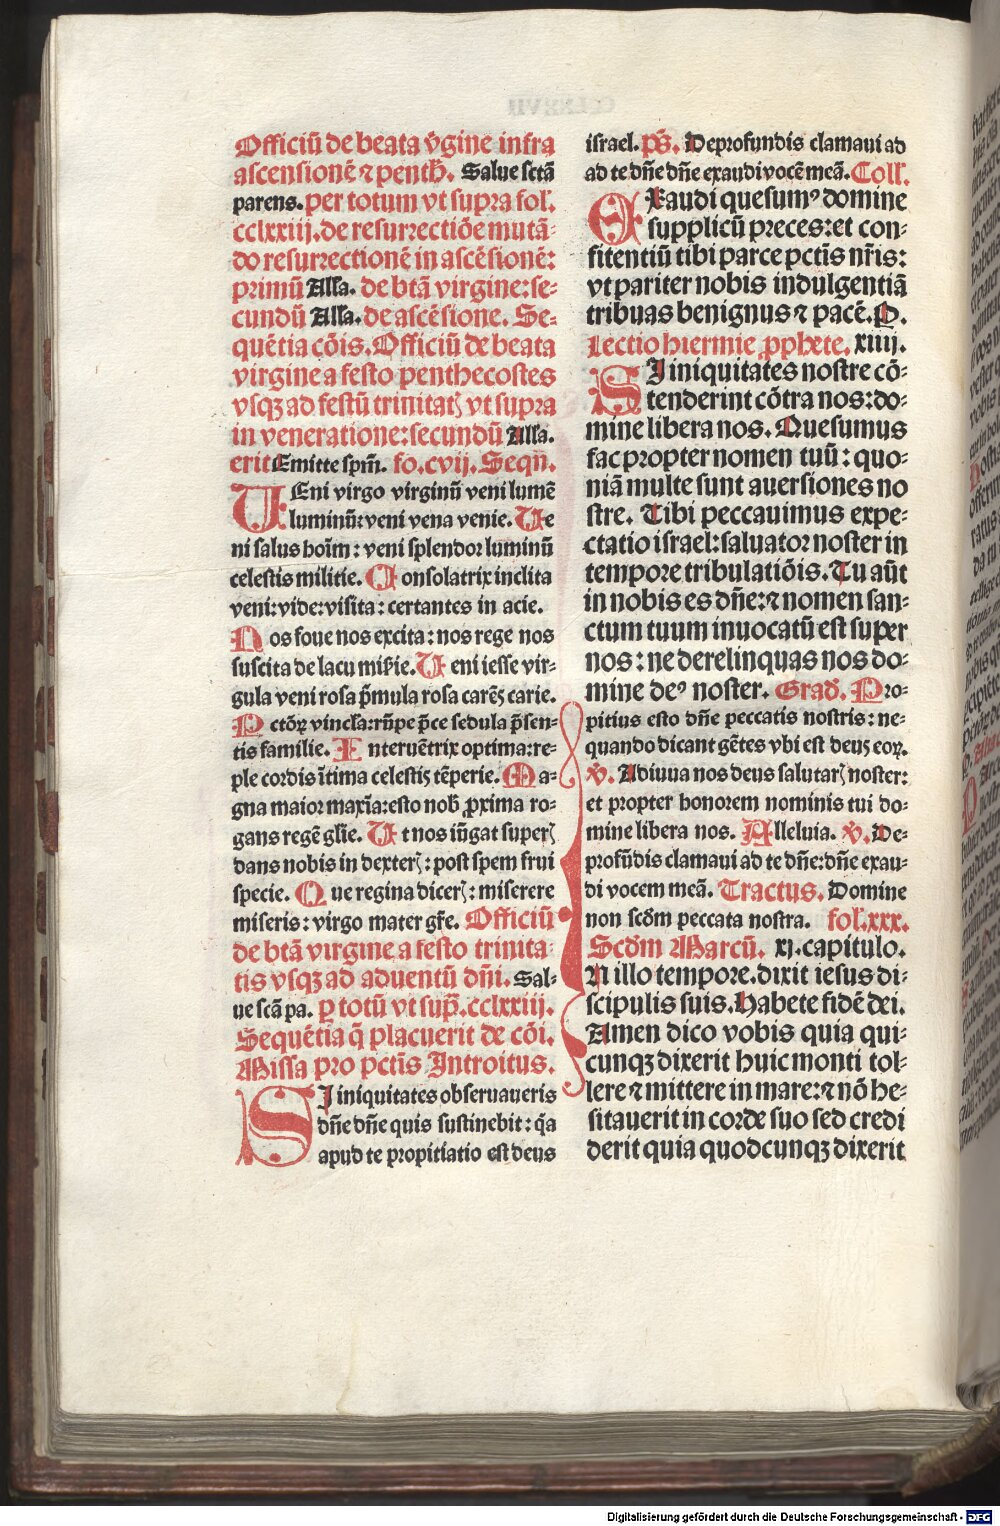 Officiū de beata v̓gine infra
ascensionē ⁊ penth̄. Salue sctā
parens. per totum vt supra fol.
cclxxiij. de resurrectiōe mutā-
do resurrectionē in ascēsionē:
primū Alła. de btā virgine: se-
cundū Alła. de ascēsione. Se-
quētia cōis. Officiū de beata
virgine a festo penthecostes
vsqꝫ ad festū trinitatꝭ vt supra
in veneratione: secundū Alła.
erit Emitte spm̄. fo. cvij. Seqn̄.
VEni virgo virginū veni lumē
luminū: veni vena venie. Ve
ni salus hoīm: veni splendor luminū
celestis militie. Consolatrix inclita
veni: vide: visita: certantes in acie.
Nos foue nos excita: nos rege nos
suscita de lacu mis̄ie. Veni iesse vir-
gula veni rosa p̄mula rosa carēs carie.
Pctōꝝ vincła: rūpe p̄ce sedula p̄sen-
tis familie. Interuētrix optima: re-
ple cordis ītima celestis tēperie. Ma-
gna maior maxīa: esto nob̄ ꝓxima ro-
gans regē gl̄ie. Vt nos iūgat superꝭ
dans nobis in dexterꝭ: post spem frui
specie. Que regina dicerꝭ: miserere
miseris: virgo mater gr̄e. Officiū
de btā virgine a festo trinita-
tis vsqꝫ ad aduentū dn̄i. Sal-
ue scā pa. ꝑ totū vt sup̄. cclxxiij.
Sequētia q̄ placuerit de cōi.
Missa pro pctīs Introitus.
SI iniquitates obseruaueris
dn̄e dn̄e quis sustinebit: q̄a
apud te propitiatio est deus
israel. p̄s. Deprofundis clamaui ad
ad te dn̄e dn̄e exaudi vocē meā. Coll.
EXaudi quesumꝰ domine
supplicū preces: et con-
fitentiū tibi parce pctīs nr̄is:
vt pariter nobis indulgentiā
tribuas benignus ⁊ pacē. P.
Lectio hiermie ꝓphete. xiiij.
SI iniquitates nostre cō-
tenderint cōtra nos: do-
mine libera nos. Quesumus
fac propter nomen tuū: quo-
niā multe sunt auersiones no
stre. Tibi peccauimus expe-
ctatio israel: saluator noster in
tempore tribulatiōis. Tu aūt
in nobis es dn̄e: ⁊ nomen san-
ctum tuum inuocatū est super
nos: ne derelinquas nos do-
mine deꝰ noster. Grad. Pro-
pitius esto dn̄e peccatis nostris: ne-
quando dicant gētes vbi est deus eoꝝ.
v̓. Adiuua nos deus salutarꝭ noster:
et propter honorem nominis tui do-
mine libera nos. Alleluia. v̓. De-
profūdis clamaui ad te dn̄e: dn̄e exau-
di vocem meā. Tractus. Domine
non scd̄m peccata nostra. fol. xxx.
Scd̄m Marcū. xj. capitulo.
IN illo tempore. dixit iesus di-
scipulis suis. Habete fidē dei.
Amen dico vobis quia qui-
cunqꝫ dixerit huic monti tol-
lere ⁊ mittere in mare: ⁊ nō he-
sitauerit in corde suo sed credi
derit quia quodcunqꝫ dixerit
Digitalisierung gefördert durch die Deutsche Forschungsgemeinschaft - DFG